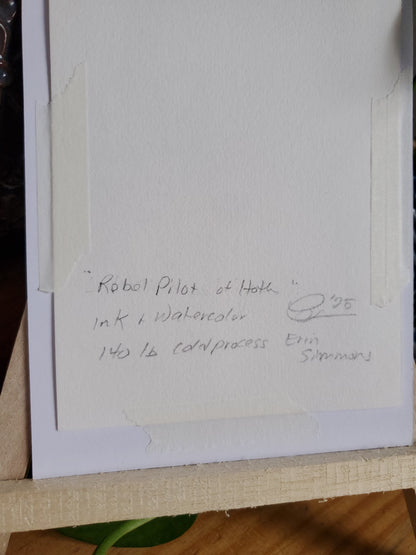 "Rebel Pilot of Hoth"
Ink + Watercolor
140 lb cold process
'25
Erin
Simmons